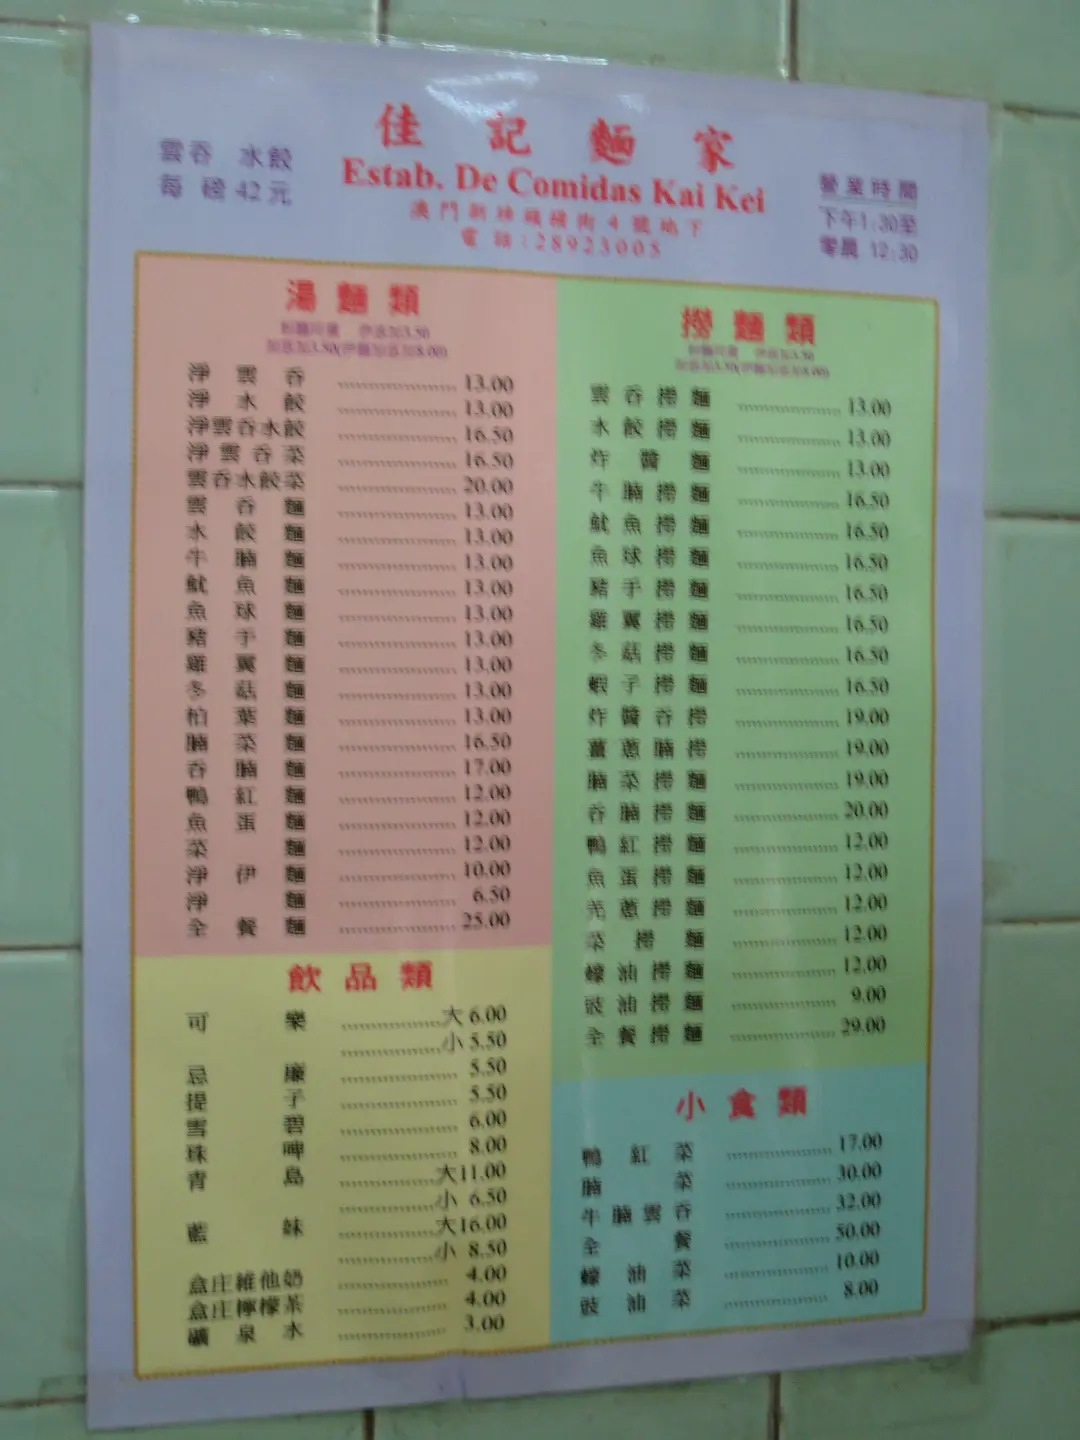 雲吞 水餃
每 磅 42 元
佳記麵家
Estab. De Comidas Kai Kei
澳門新埗頭橫街 4 號地下
電話:28923005
營業時間
下午1:30至
零晨 12:30
湯麵類
加底加3.50(伊麵加底加8.00)
淨雲吞 13.00
淨水餃 13.00
淨雲吞水餃 16.50
淨雲吞菜 16.50
雲吞水餃菜 20.00
雲吞麵 13.00
水餃麵 13.00
牛腩麵 13.00
魷魚麵 13.00
魚球麵 13.00
豬手麵 13.00
雞翼麵 13.00
冬菇麵 13.00
柏葉麵 13.00
腩菜麵 16.50
吞腩麵 17.00
鴨紅麵 12.00
魚蛋麵 12.00
菜麵 12.00
淨伊麵 10.00
淨麵 6.50
全餐麵 25.00
飲品類
可樂 大 6.00
小 5.50
忌廉 5.50
提子 5.50
雪碧 6.00
珠啤 8.00
青島 大11.00
小 6.50
藍妹 大16.00
小 8.50
盒庄維他奶 4.00
盒庄檸檬茶 4.00
礦泉水 3.00
撈麵類
加底加3.50(伊麵加底加8.00)
雲吞撈麵 13.00
水餃撈麵 13.00
炸醬麵 13.00
牛腩撈麵 16.50
魷魚撈麵 16.50
魚球撈麵 16.50
豬手撈麵 16.50
雞翼撈麵 16.50
冬菇撈麵 16.50
蝦子撈麵 16.50
炸醬吞撈 19.00
薑蔥腩撈 19.00
腩菜撈麵 19.00
吞腩撈麵 20.00
鴨紅撈麵 12.00
魚蛋撈麵 12.00
羌蔥撈麵 12.00
菜撈麵 12.00
蠔油撈麵 12.00
豉油撈麵 9.00
全餐撈麵 29.00
小食類
鴨紅菜 17.00
腩菜 30.00
牛腩雲吞 32.00
全餐 50.00
蠔油菜 10.00
豉油菜 8.00